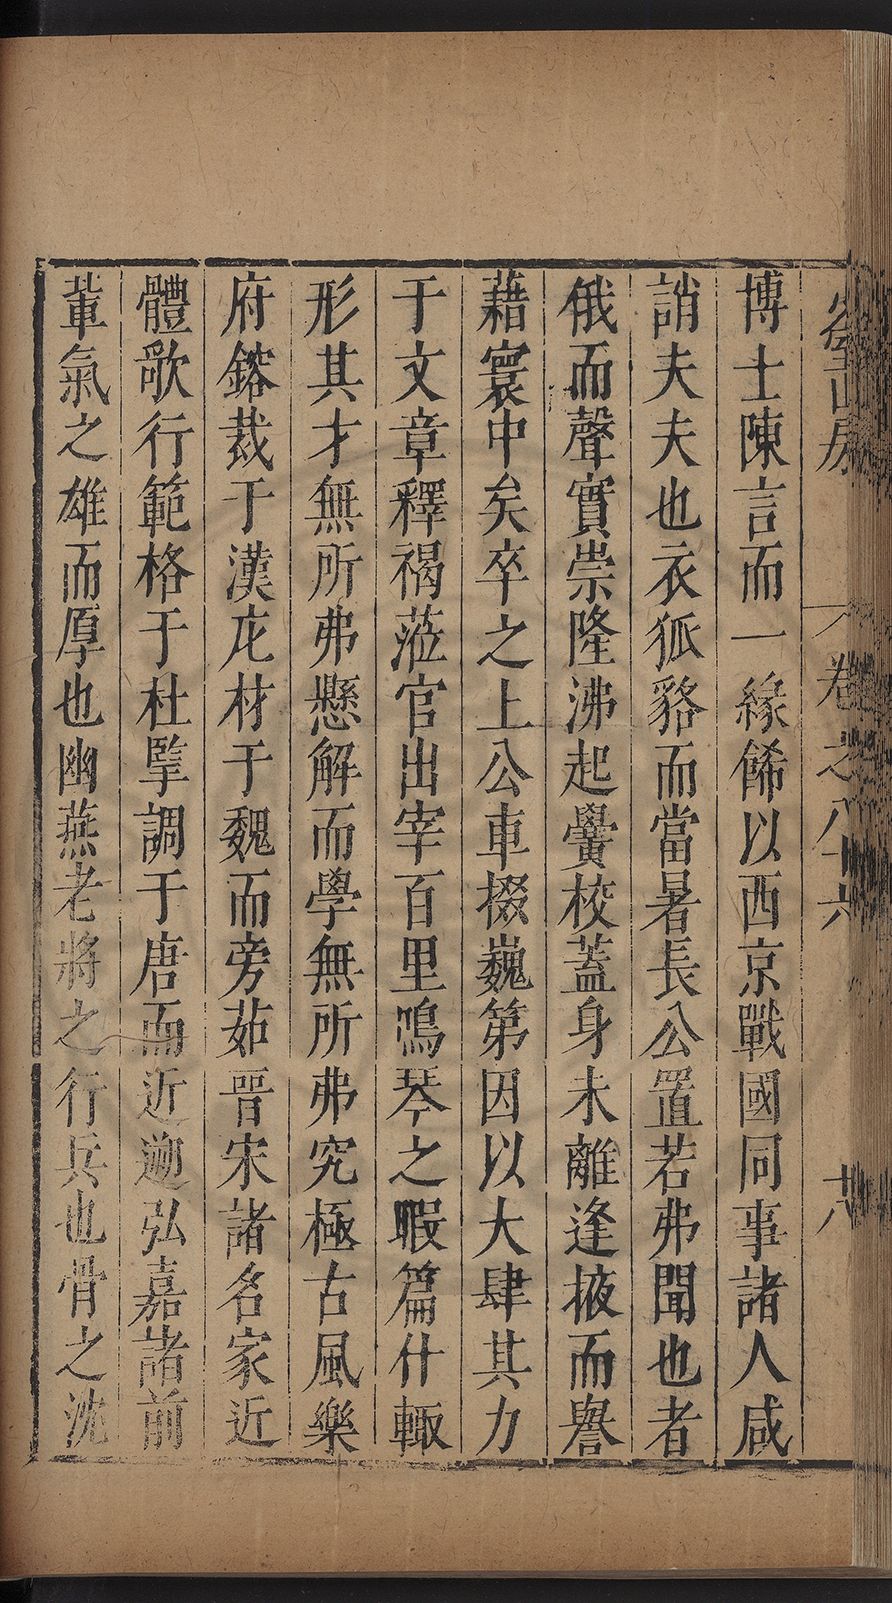 少室山房
卷之八十六
十八
博士陳言而一緣餙以西京戰國同事諸人咸
誚夫夫也衣狐貉而當暑長公置若弗聞也者
俄而聲實崇隆沸起黌校蓋身未離逢掖而譽
藉寰中矣卒之上公車掇巍第因以大肆其力
于文章釋褐蒞官出宰百里鳴琴之暇篇什輙
形其才無所弗懸解而學無所弗究極古風樂
府鎔裁于漢庀材于魏而旁茹晉宋諸名家近
體歌行範格于杜掔調于唐而近遡弘嘉諸前
軰氣之雄而厚也幽燕老將之行兵也骨之沈